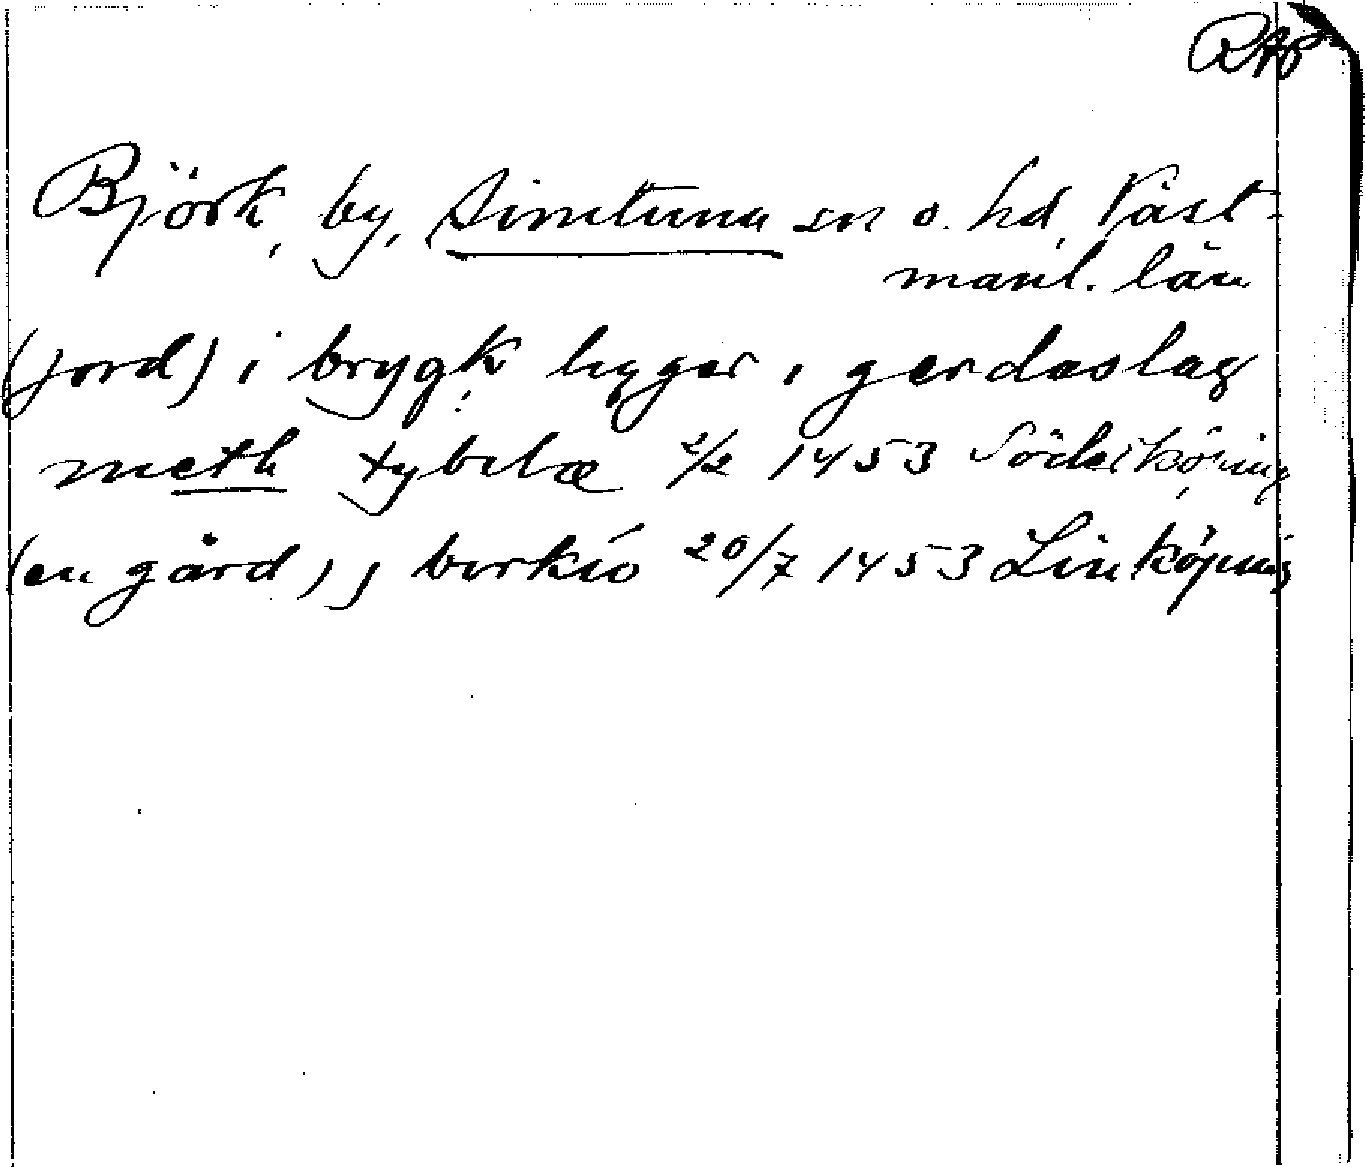 RAp
Björk, by, Simtuna sn o. hd, Väst-
manl. län
(jord) i brygk ligger i gerdaslag
meth tybelæ 2/2 1453 Söderköping
(en gård) j birkio 20/7 1453 Linköping